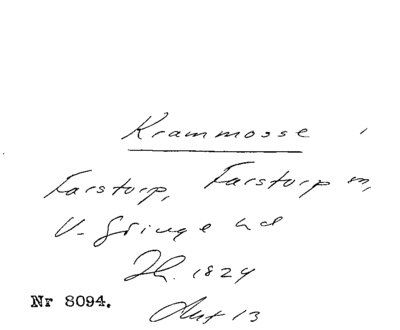 Krammosse i
Farstorp, Farstorp sn,
V. Göinge hd
Jh. 1824
Nr 8094.
Aut 13